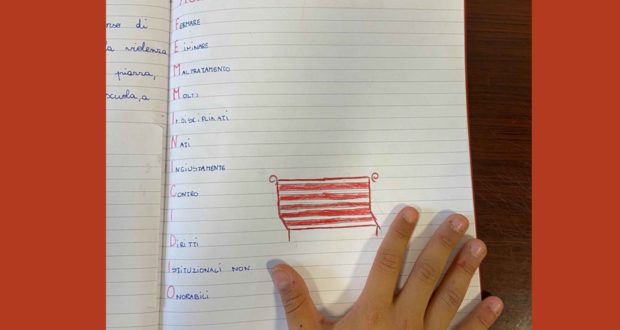 di
la violenza
piazza,
scuola, a
FERMARE
EIMINARE
MALTRATAMENTO
MOLTI
INDISCIPLINATI
NATI
INGIUSTAMENTE
CONTRO
I
DIRITTI
ISTITUZIONALI NON
ONORABILI